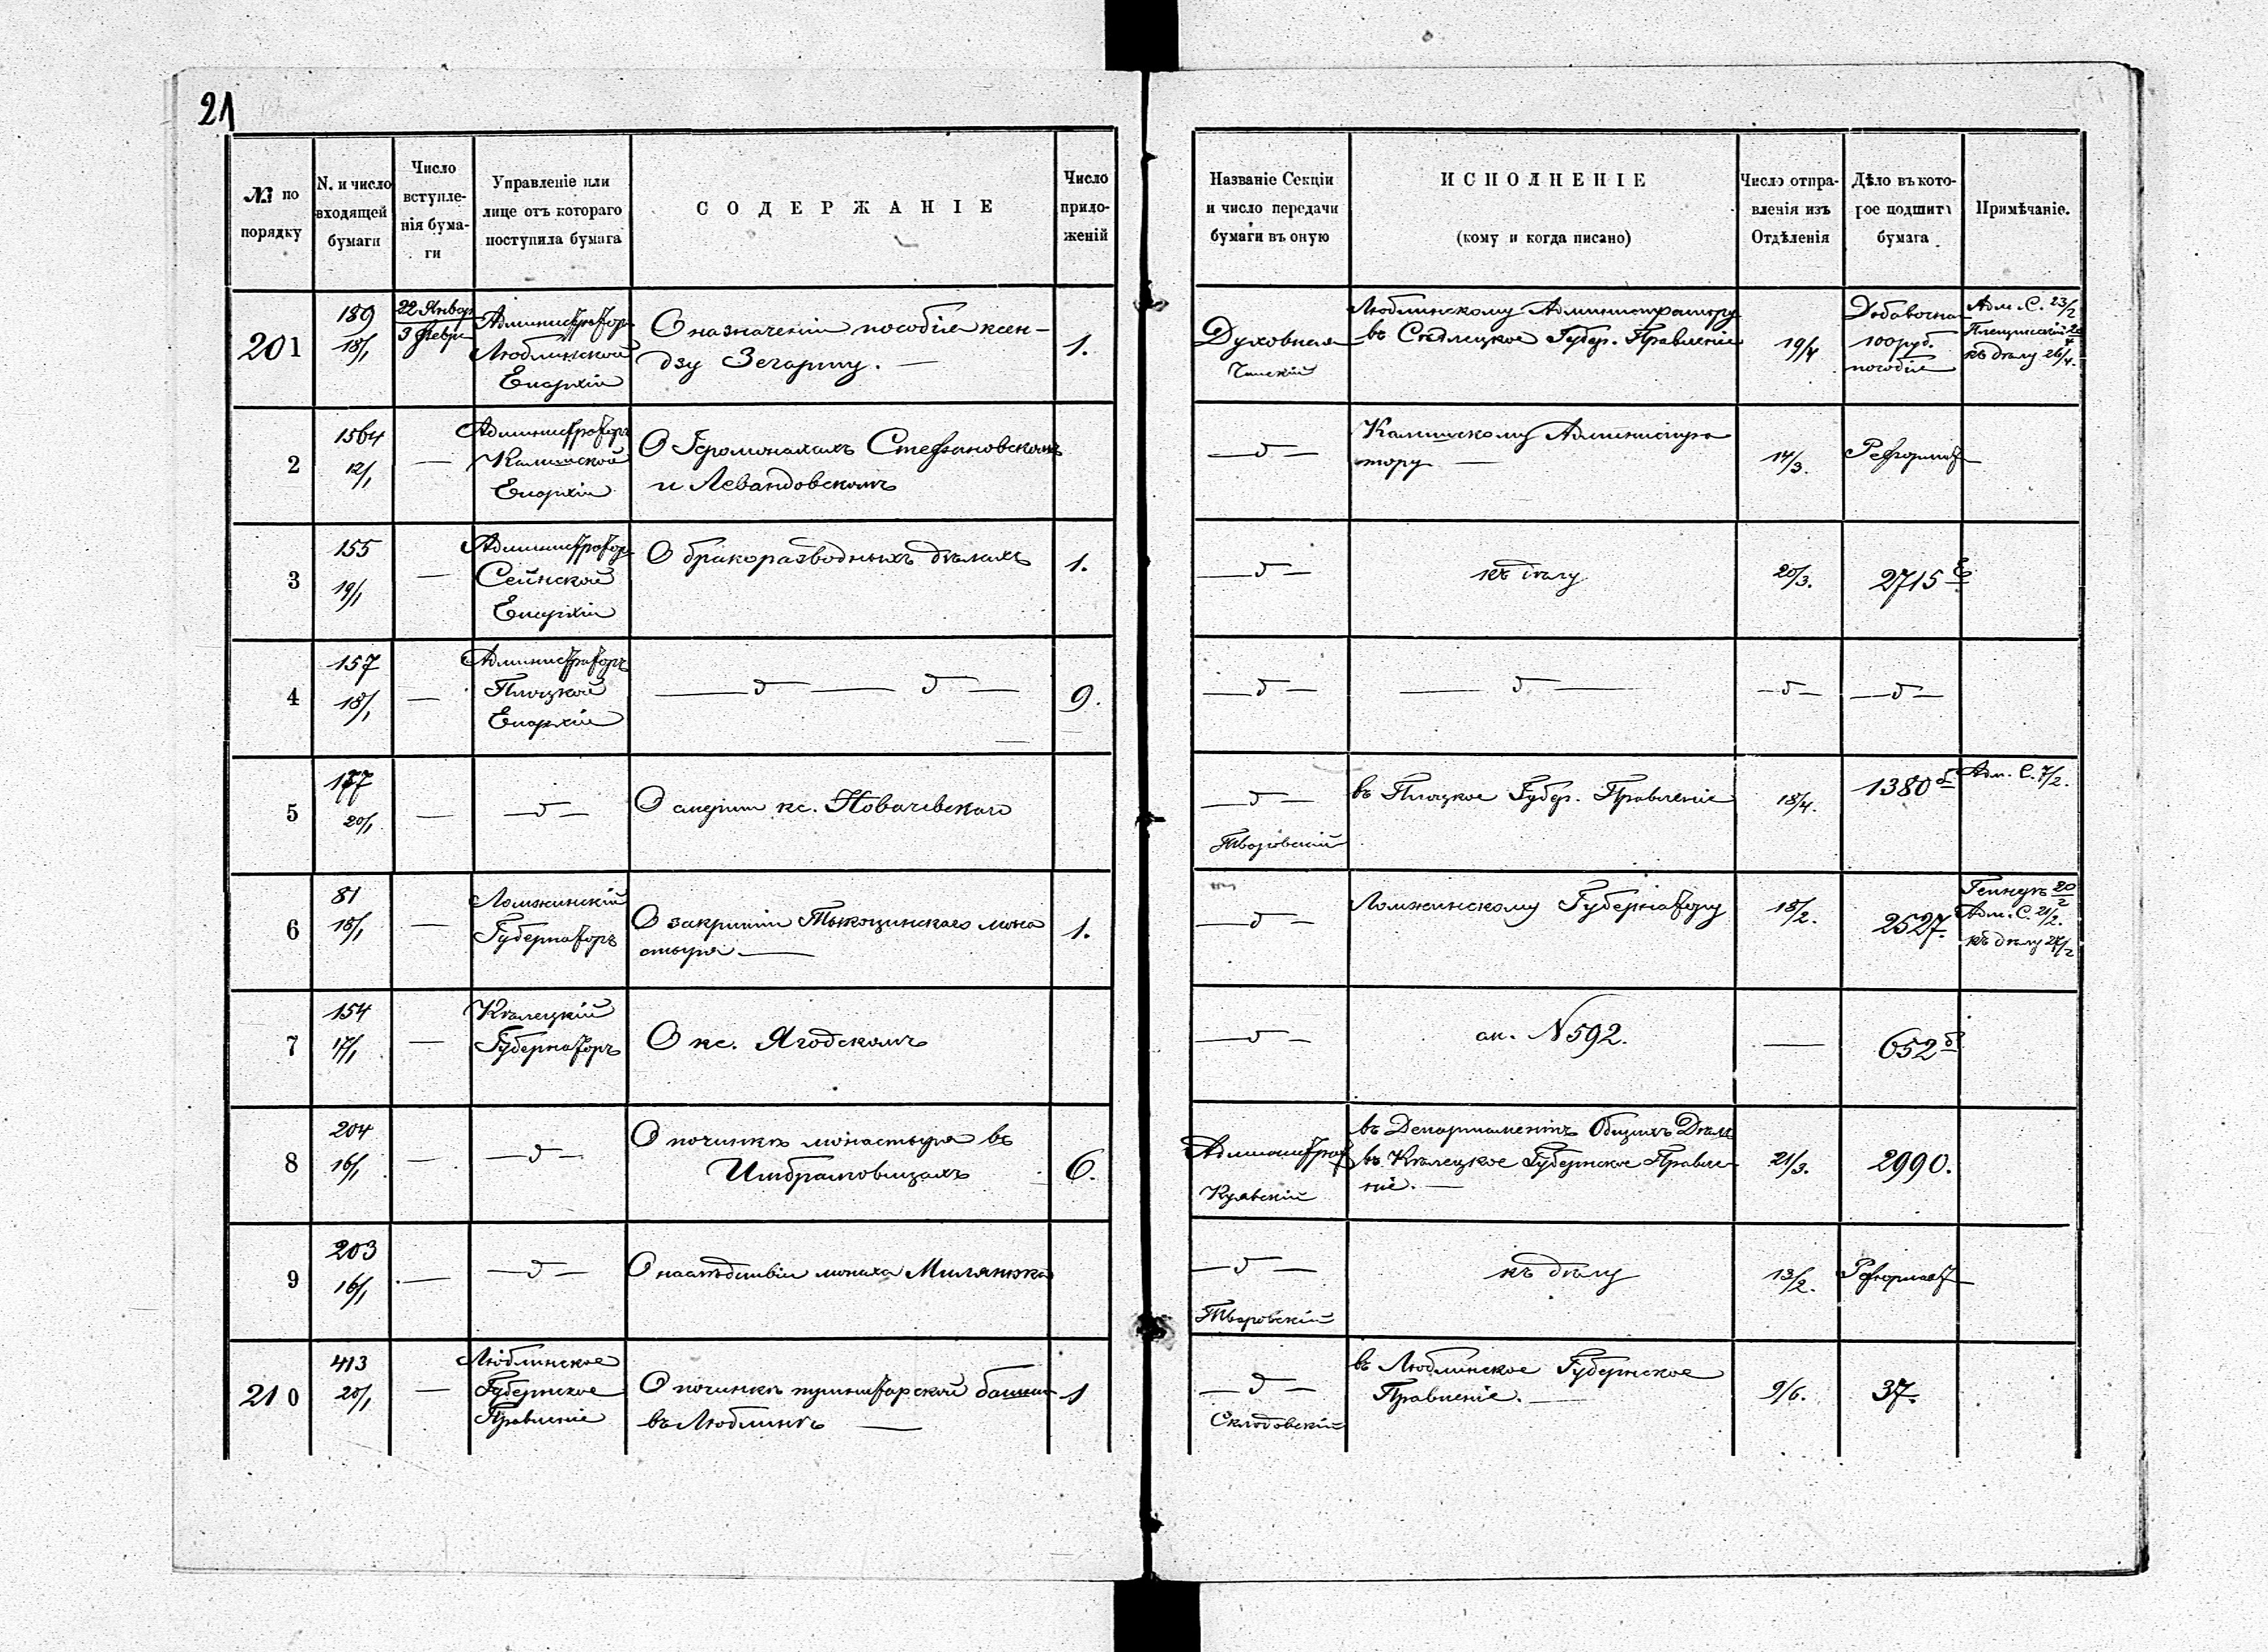 21
№ по порядку
N. и число входящей бумаги
Число вступленія бумаги
Управленіе или лице отъ котораго поступила бумага
СОДЕРЖАНІЕ
Число приложеній
Названіе Секціи и число передачи бумаги въ оную
ИСПОЛНЕНІЕ
(кому и когда писано)
Число отправленія изъ Отдѣленія
Дѣло въ которое подшита бумага
Примѣчаніе.
201
189
18/1
22 Январ
3 Февр
Администраторъ
Люблинской
Епархіи
О назначеніи пособія ксен-
дзу Зегарту.
1.
Духовная
Люблинскому Администратору
въ Сѣдлецкое Губер. Правленіе
19/4
Добавочна
100 руб.
пособіе
Адм. С. 23/2
къ дѣлу 26/4.
2
1564
12/1
—
Администраторъ
Калишской
Епархіи
О Іеромонахахъ Стефановскомъ
и Левандовскомъ
— " —
Калишскому Администра
тору —
14/3.
Реформат
3
155
19/1
—
Администраторъ
Сейнской
Епархіи
О бракоразводныхъ дѣлахъ
1.
— " —
къ дѣлу
20/3.
2715
4
157
18/1
—
Администраторъ
Плоцкой
Епархіи
— " — " —
9.
— " —
— " —
— " —
— " —
5
177
20/1
—
— " —
О смерти кс. Новачевскаго
— " —
Творовскій
въ Плоцкое Губер. Правленіе
18/4.
1380
Адм. С. 7/2.
6
81
18/1
—
Ломжинскій
Губернаторъ
О закрытіи Тыкоцинскаго мона
стыря. —
1.
— " —
Ломжинскому Губернатору
18/2.
2527.
20/2
Адм. С. 21/2.
къ дѣлу 24/2
7
154
17/1
—
Кѣлецкій
Губернаторъ
О кс. Ягодскомъ
— " —
ак. N 592.
—
652
8
204
16/1
—
— " —
О починкѣ монастыря въ
Имбрамовицахъ
6.
Администрат
Куявскій
въ Департаментъ Общихъ Дѣлъ
въ Кѣлецкое Губернское Правле
ніе. —
21/3.
2990.
9
203
16/1
—
— " —
О наслѣдствіи монаха Милянюка
— " —
Творовскій
къ дѣлу
13/2.
Реформат
210
413
20/1
—
Люблинское
Губернское
Правленіе
О починкѣ тринитарской башни
въ Люблинѣ —
1
— " —
Склодовскій
въ Люблинское Губернское
Правленіе. —
9/6.
37.